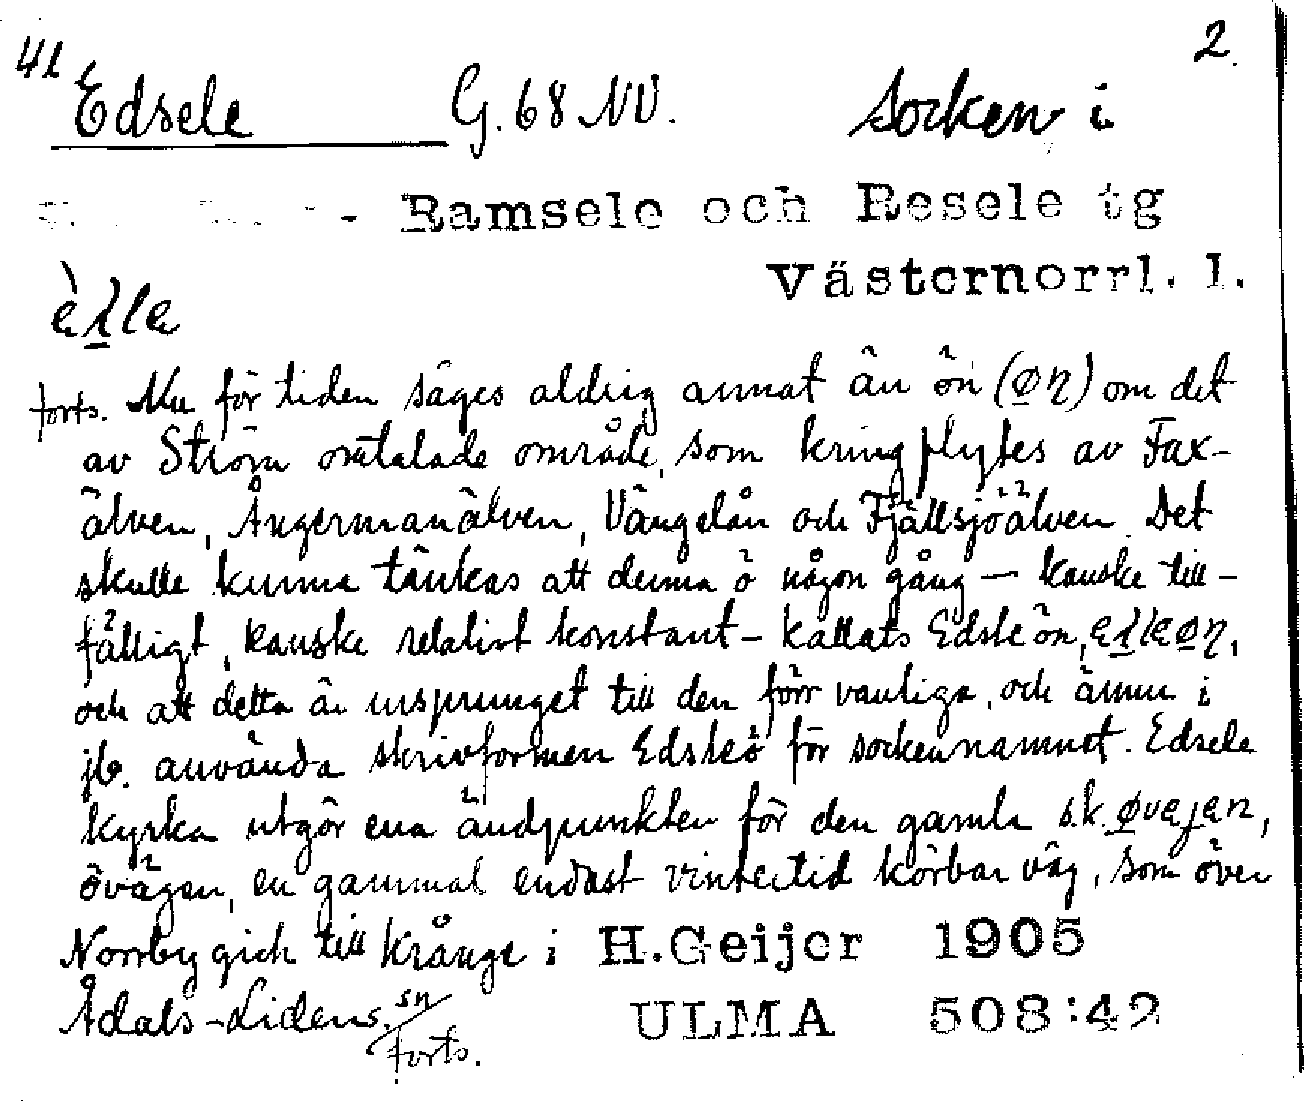 41 2.
Edsele G. 68 NV. Socken i
Ramsele och Resele tg
Västernorrl. l.
forts. Nu för tiden säges aldrig annat än ön (øn) om det
av Ström omtalade område, som kringflytes av Fax-
älven, Ångermanälven, Vängelån och Fjällsjöälven. Det
skulle kunna tänkas att denna ö någon gång – kanske till-
fälligt, kanske relativt konstant – kallats Edsleön,
och att detta är ursprunget till den förr vanliga, och ännu i
jb. använda skrivformen Edsleö för sockennamnet. Edsele
kyrka utgör ena ändpunkten för den gamla s.k. øvajen,
övägen, en gammal endast vintertid körbar väg, som över
Norrby gick till Krånge i H.Geijer 1905
Ådals-Lidens sn ULMA 508:42
Forts.